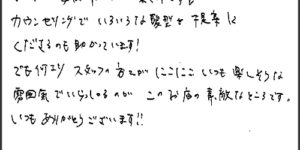 カウンセリングで いろいろな髪型を 提案して
くださるのも助かっています!
でも何より スタッフの皆さんが にこにこ いつも 楽しそうな
雰囲気で いらっしゃるのが このお店の素敵なところです。
いつも ありがとうございます!!